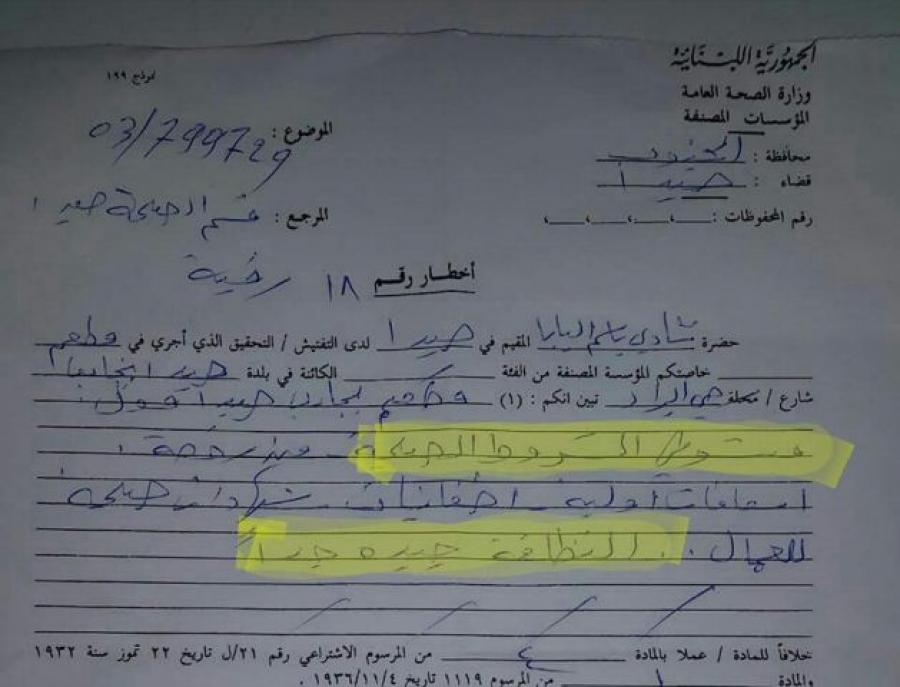 الجمهورية اللبنانية
وزارة الصحة العامة
المؤسسات المصنفة
محافظة : الجنوب
قضاء : صيدا
رقم المحفوظات :
نموذج ١٩٩
الموضوع : 03/799729
المرجع : قسم الصحة صيدا
أخطار رقم ١٨
حضرة شادي باسم البابا المقيم في صيدا لدى التفتيش / التحقيق الذي أجري في مطعم
خاصتكم المؤسسة المصنفة من الفئة الكائنة في بلدة صيدا
شارع / محلة حي البراد تبين انكم : (١) مطعم
مستوفي الشروط الصحية من رخصة
اسعافات أولية اطفائيات شهادات صحية
للعمال . النظافة جيده جداً
خلافاً للمادة / عملا بالمادة ٤ من المرسوم الاشتراعي رقم ٢١/ل تاريخ ٢٢ تموز سنة ١٩٣٢
والمادة ١ من المرسوم ١١١٩ تاريخ ١٩٣٦/١١/٤ .